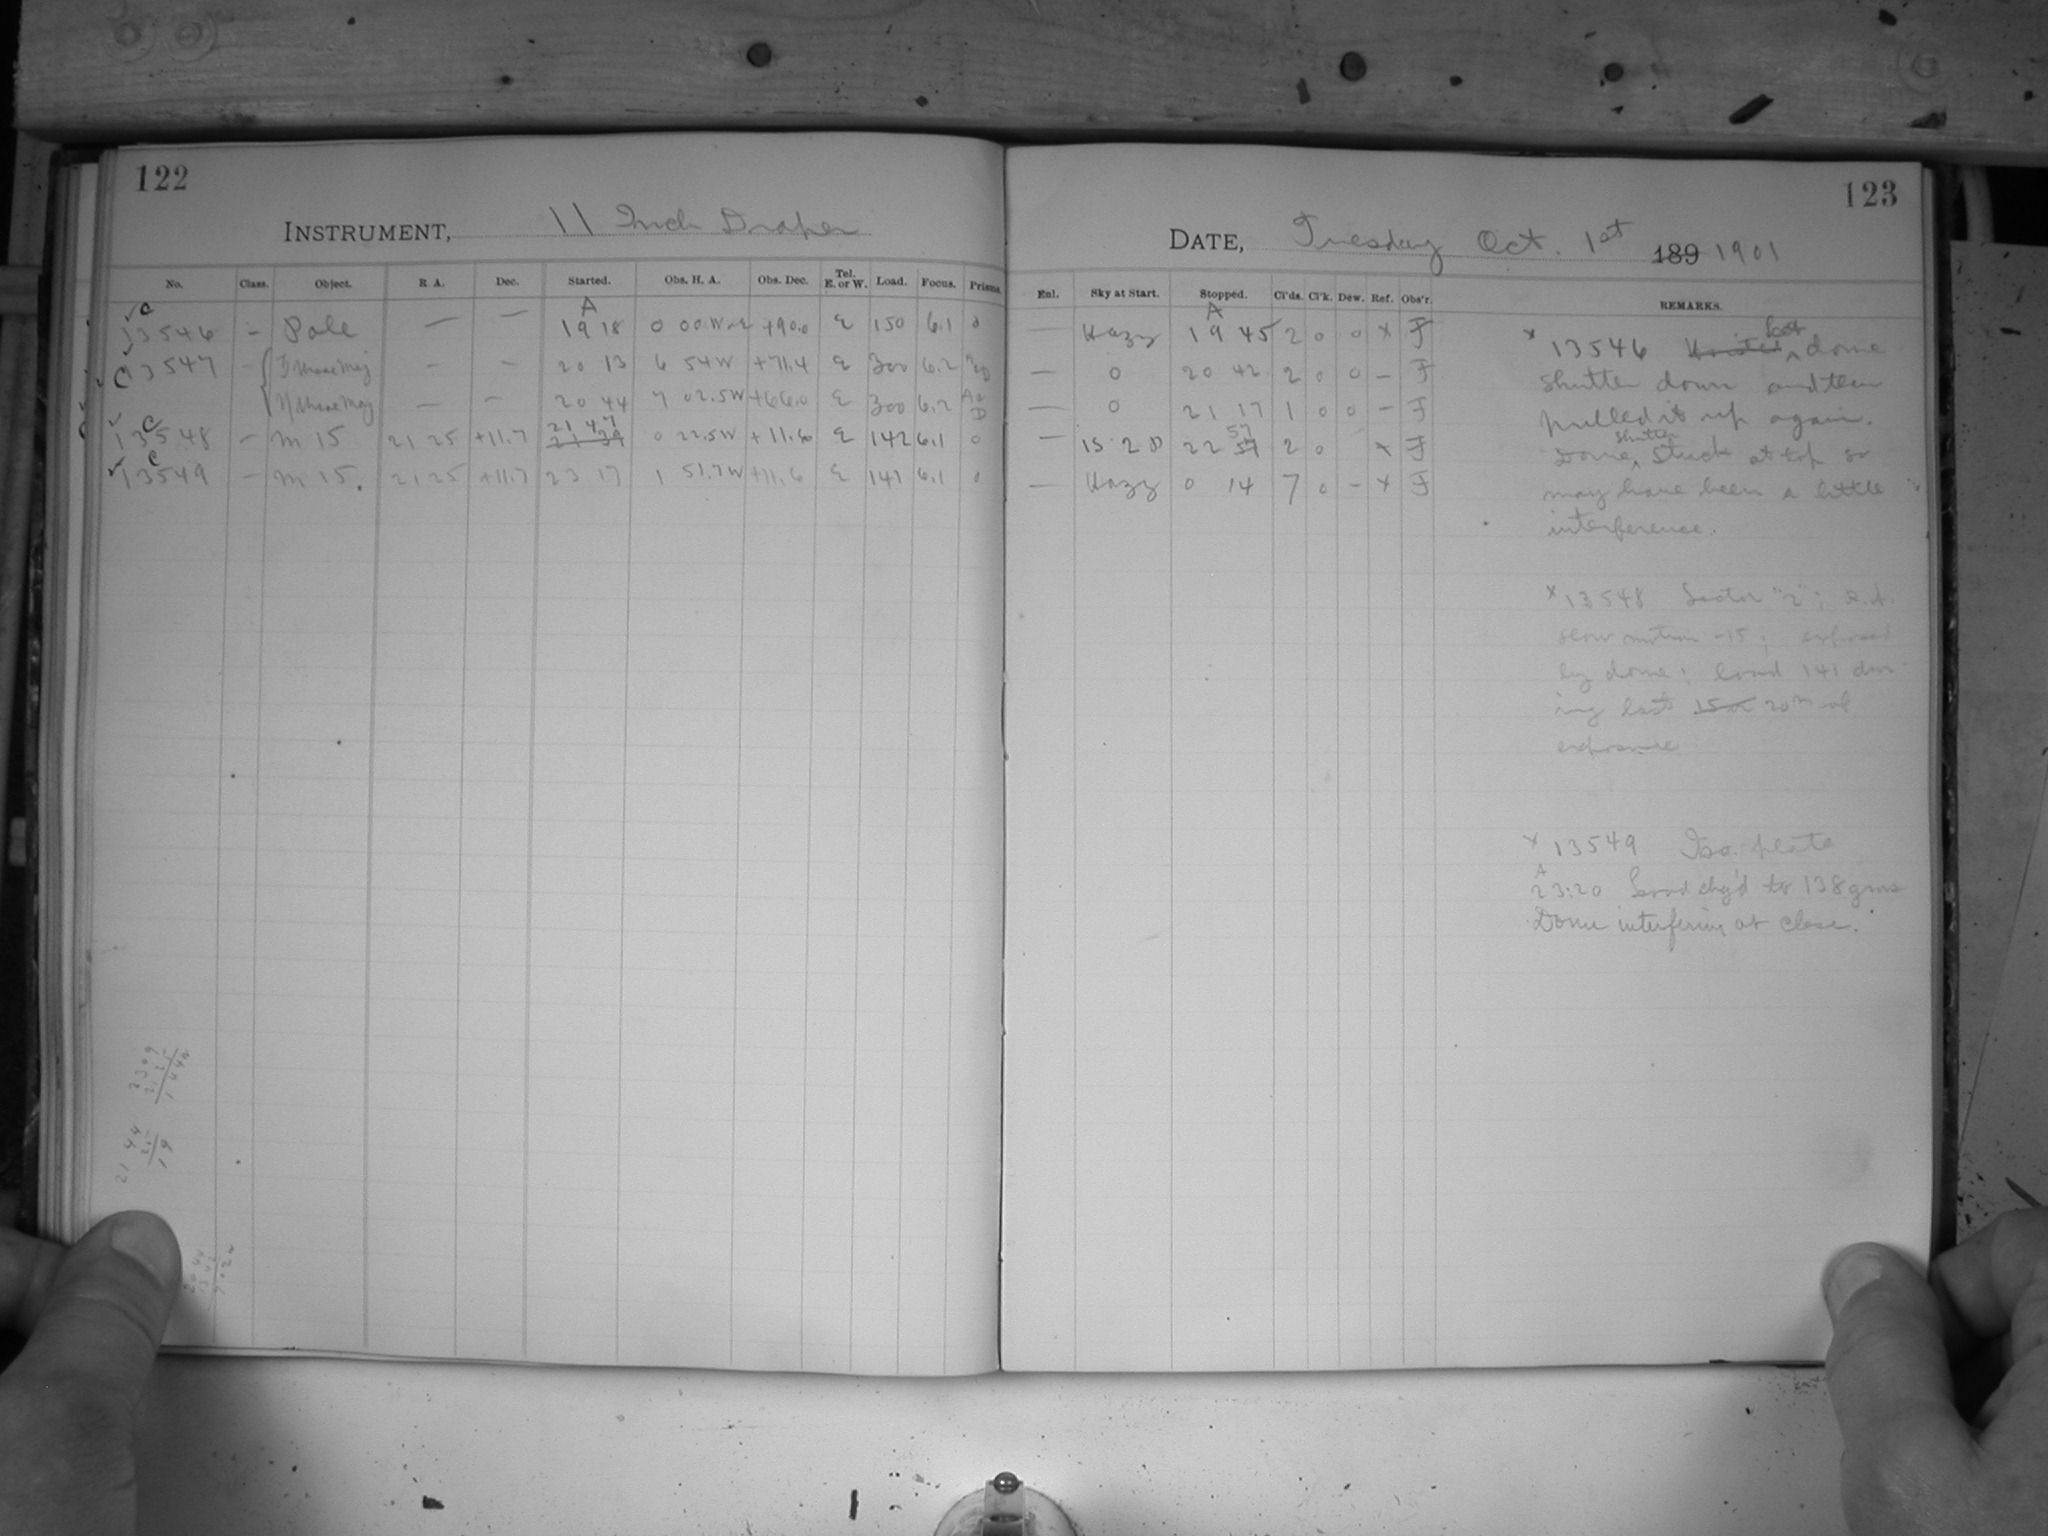 122
INSTRUMENT, 11 Inch Draper
No. Class. Object. R. A. Dec. Started. Obs. H. A. Obs. Dec. Tel. E. or W. Load. Focus. Prisms.
A
13546 - Pole — — 19 18 0 00. W or E +90.0 E 150 6.1 0
13547 - ζ Ursae Maj — — 20 13 6 54 W +71.4 E 300 6.2
η Ursae Maj — — 20 44 7 02.5 W +66.0 E 300 6.2
13548 - M 15 21 25 +11.7 21 47 0 22.5 W +11.6 E 142 6.1 0
13549 - M 15. 21 25 +11.7 23 17 1 51.7 W +11.6 E 141 6.1 0
2309
2125
144
21 44
25
19
20 44
13 42
7 02
123
DATE, Tuesday Oct. 1st 189 1901
Enl. Sky at Start. Stopped. Cl'ds. Cl'k. Dew. Ref. Obs'r. REMARKS.
A
— Hazy 19 45 2 0 0 x F
— 0 20 42 2 0 0 - F
— 0 21 17 1 0 0 - F
— 15 2 D 22 57 2 0 x F
— Hazy 0 14 7 0 - x F
x 13546 dome
shutter down and then
pulled it up again.
Dome shutter stuck at top so
may have been a little
interference.
x 13548 Sector "2"; R.A.
slow motion -15; exposed
by dome; load 141 dur-
ing last 20m of
exposure
x 13549 Iso. plate
A
23:20 Load chg'd to 138 gms
Dome interfering at close.